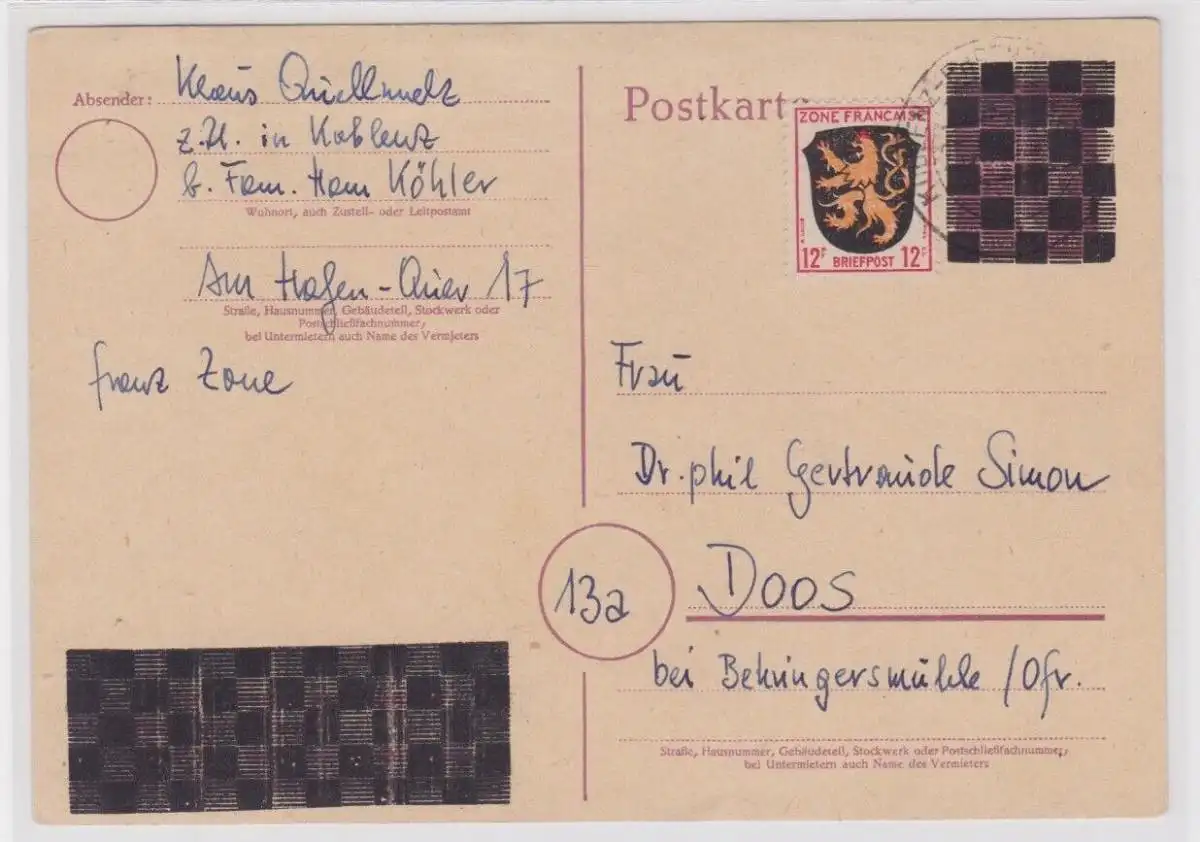 Absender: Klaus Quellmelz
z. Zt. in Koblenz
b. Fam. Ham Köhler
Wohnort, auch Zustell- oder Leitpostamt
Am Hafen-Quier 17
Straße, Hausnummer, Gebäudeteil, Stockwerk oder
Postschließfachnummer,
bei Untermietern auch Name des Vermieters
franz Zone
Postkarte
ZONE FRANÇAISE
12 F BRIEFPOST 12 F
Frau
Dr. phil Gertraude Simon
13a
Doos
bei Behringersmühle / Ofr.
Straße, Hausnummer, Gebäudeteil, Stockwerk oder Postschließfachnummer,
bei Untermietern auch Name des Vermieters